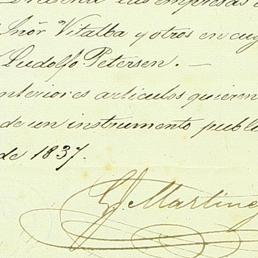 las empresas
Señor Vitalba y otros en cuy
Ludolfo Petersen. —
anteriores articulos quieren
de un instrumento publ
de 1837.
G. Martine